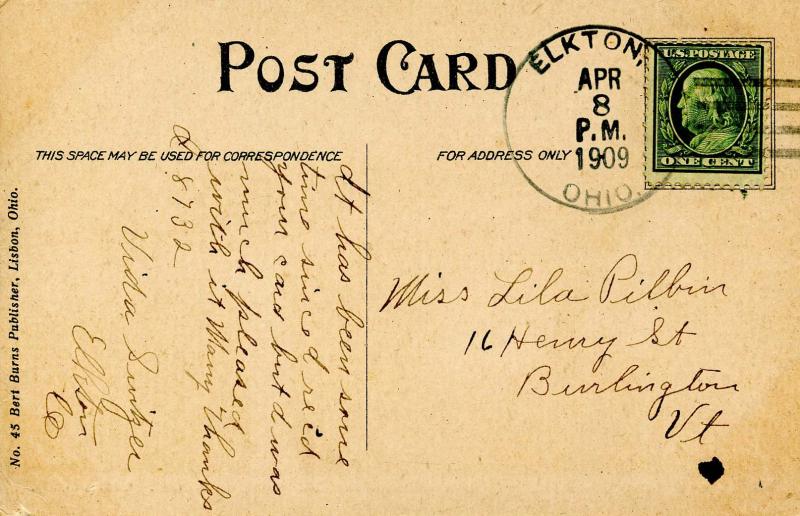 POST CARD
ELKTON,
APR
8
P.M.
1909
OHIO.
U.S. POSTAGE
ONE CENT
THIS SPACE MAY BE USED FOR CORRESPONDENCE
FOR ADDRESS ONLY
It has been some
time since I rec'd
your card but I was
much pleased
with it Many Thanks
8732
Vida
Elkton
O
Miss Lila Pilbin
16 Henry St
Burlington
Vt
No. 45 Bert Burns Publisher, Lisbon, Ohio.